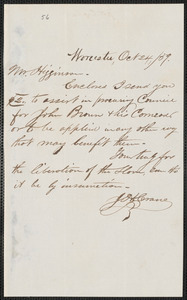 56
Worcester Oct 24/59.
Mr Higginson.
Enclosed I send you
to assist in procuring Council
for John Brown & his Comrads
or to be applied in any other way
that may benefit them.
Yours truly for
the liberation of the Slave
it be by insurrection.